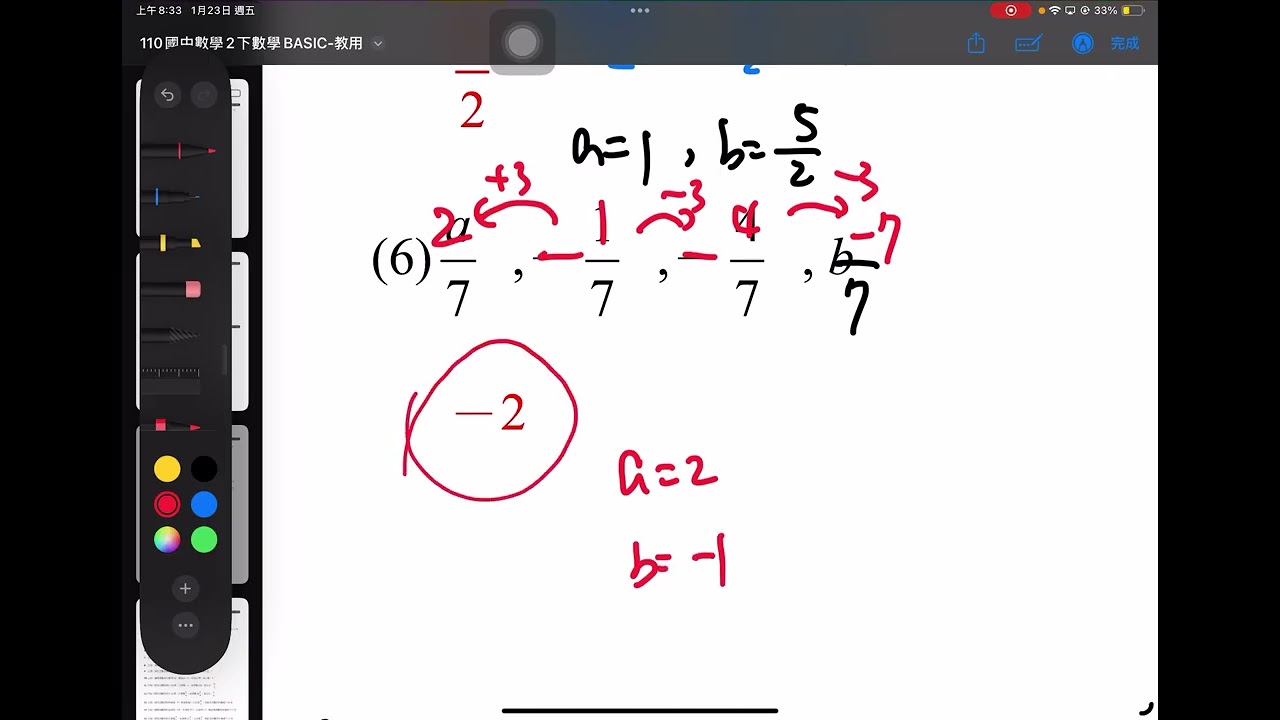 上午8:33 1月23日 週五 33%
110國中數學2下數學BASIC-教用 完成
2
a=1 , b=5/2
+3 -3 -3
2 1 4 -7
(6) a/7 , -1/7 , -4/7 , b/7
-2
a=2
b=-1